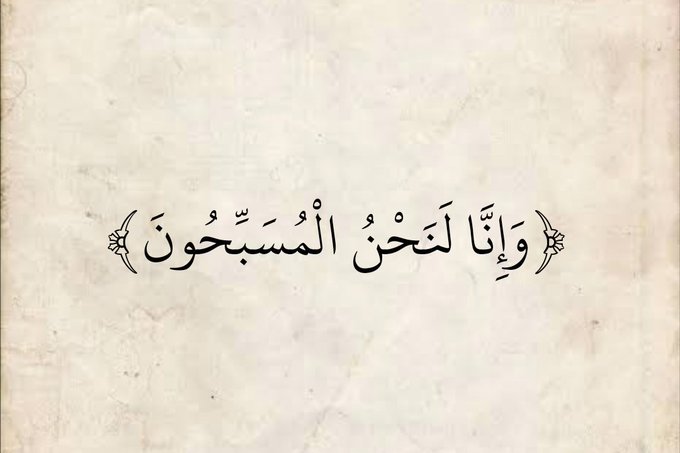 ﴿وَإِنَّا لَنَحْنُ الْمُسَبِّحُونَ﴾